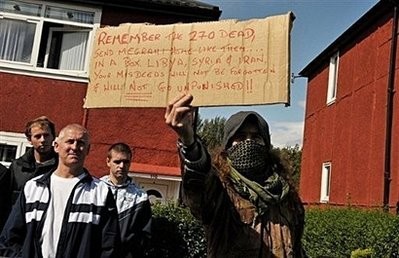 REMEMBER THE 270 DEAD,
SEND MEGRAHI HOME LIKE THEY....
IN A BOX LIBYA, SYRIA & IRAN.
YOUR MISDEEDS WILL NOT BE FORGOTTEN
& WILL NOT GO UNPUNISHED!!